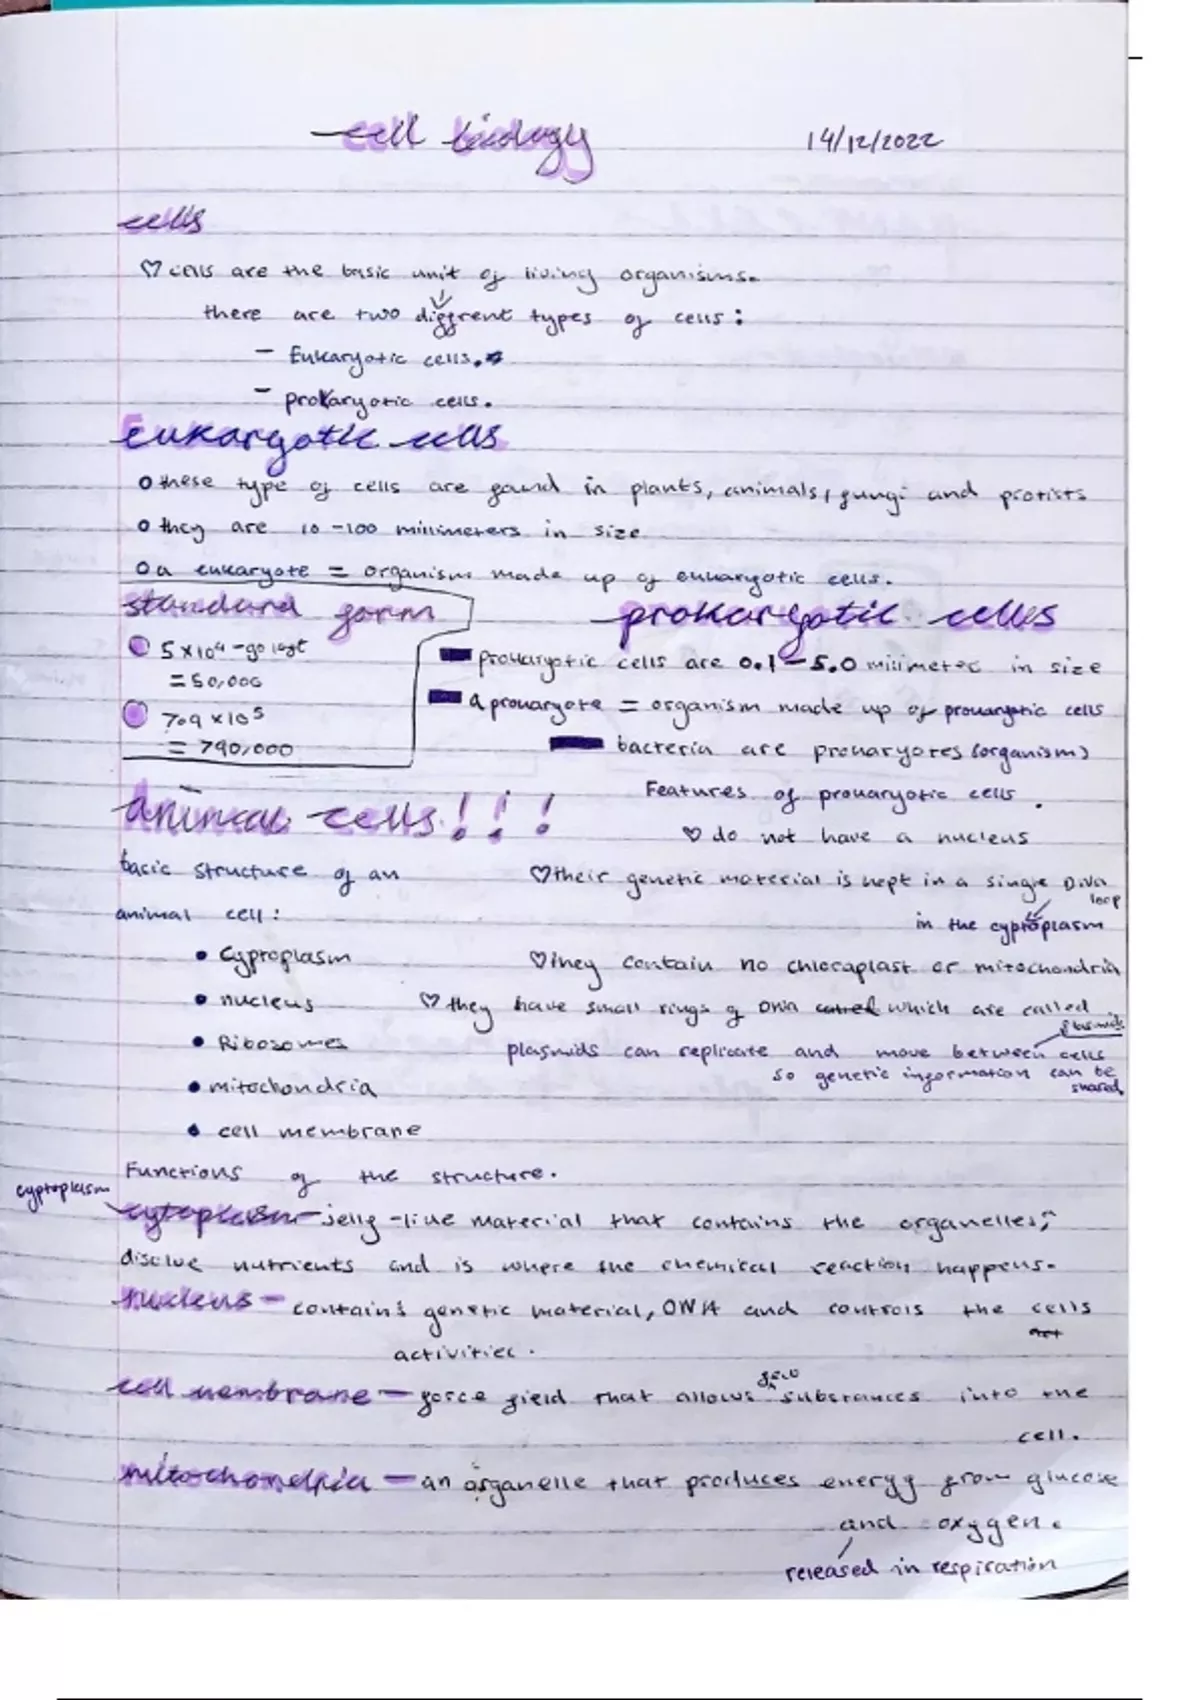 cell biology
14/12/2022
cells
♡ cells are the basic unit of living organisms.
there are two different types of cells:
- Eukaryotic cells.
- prokaryotic cells.
eukaryotic cells
o these type of cells are found in plants, animals, fungi and protists
o they are 10-100 millimeters in size
o a eukaryote = organism made up of eukaryotic cells.
standard form
5 x 10⁴ - go last
= 50,000
7.9 x 10⁵
= 790,000
prokaryotic cells
prokaryotic cells are 0.1 - 5.0 milimeter in size
a prokaryote = organism made up of prokaryotic cells
bacteria are prokaryotes (organism)
Features of prokaryotic cells.
♡ do not have a nucleus
♡ their genetic material is kept in a single DNA loop
in the cyptoplasm
♡ they contain no chloraplast or mitochondria
♡ they have small rings of DNA which are called plasmids
plasmids can replicate and move between cells
so genetic information can be shared
animal cells!!!
basic structure of an
animal cell:
• Cyproplasm
• nucleus
• Ribosomes
• mitochondria
• cell membrane
Functions of the structure.
cyptoplasm
cytoplasm - jelly-like material that contains the organelles,
disolve nutrients and is where the chemical reaction happens.
nucleus - contains genetic material, DNA and controls the cells
activities.
cell membrane - force field that allows substances into the
cell.
mitochondria - an organelle that produces energy from glucose
and oxygen.
released in respiration